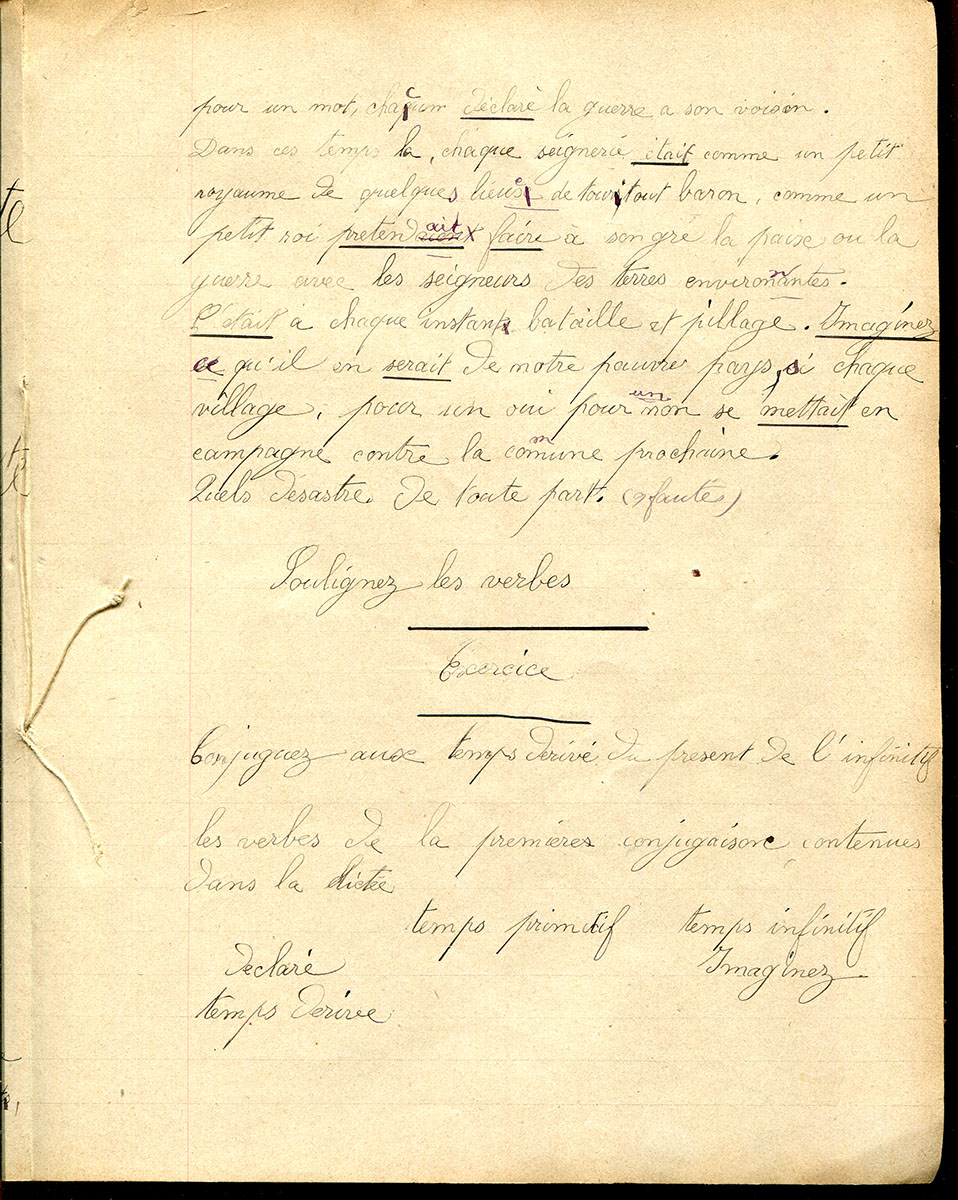 pour un mot, chacum déclaré la guerre a son voisin.
Dans ces temps la, chaque seignerie etait comme un petit
royaume de quelques lieus de tour, tout baron, comme un
petit roi pretendait faire à son gré la paix ou la
guerre avec les seigneurs des terres environnantes.
C'etait a chaque instant bataille et pillage. Imaginez
ce qu'il en serait de notre pauvre pays, si chaque
village, pour un oui pour un non se mettait en
campagne contre la commune prochaine.
Quels désastre. De toute part. (9 fautes)
Soulignez les verbes
Exercice
Conjuguez aux temps dérivé du present de l'infinitif
les verbes de la premières conjugaison contenues
dans la dictée
temps primitif temps infinitif
Déclaré Imaginez
temps dérivée
te